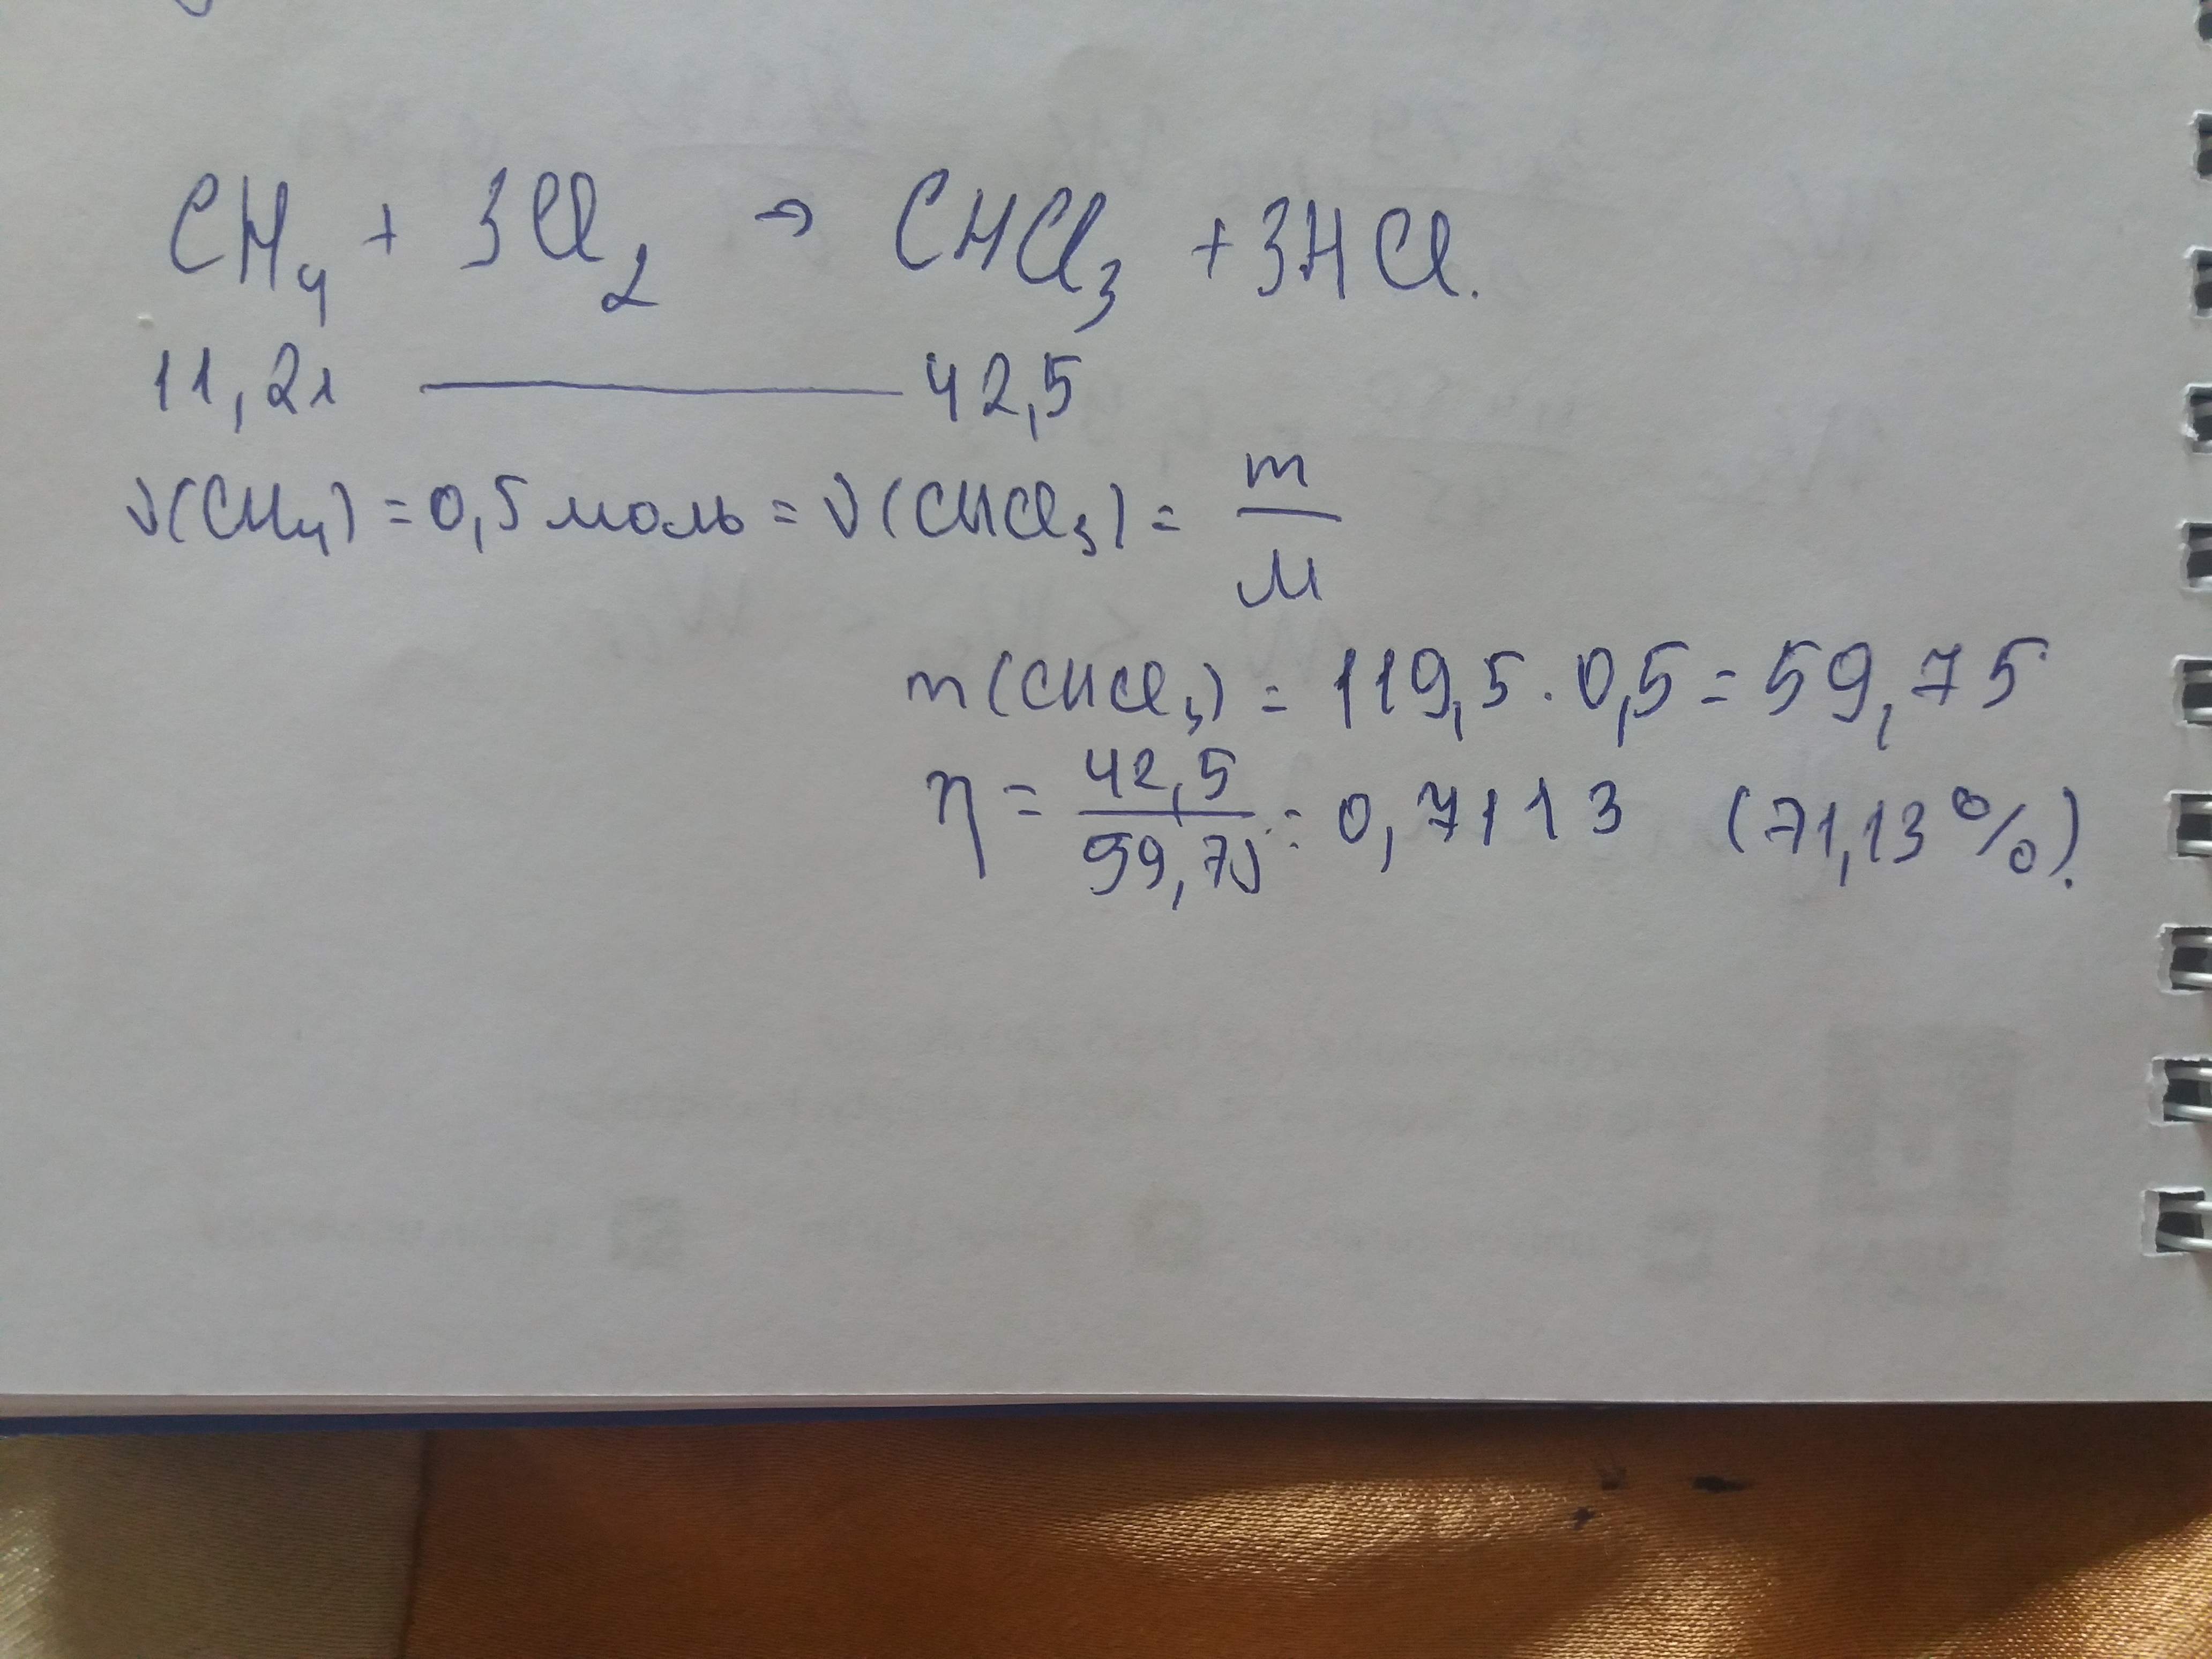 CH₄ + 3Cl₂ → CHCl₃ + 3HCl.
11,2л — 42,5
ν(CH₄) = 0,5 моль = ν(CHCl₃) = m/M
m(CHCl₃) = 119,5 · 0,5 = 59,75
η = 42,5/59,75 = 0,7113 (71,13%).